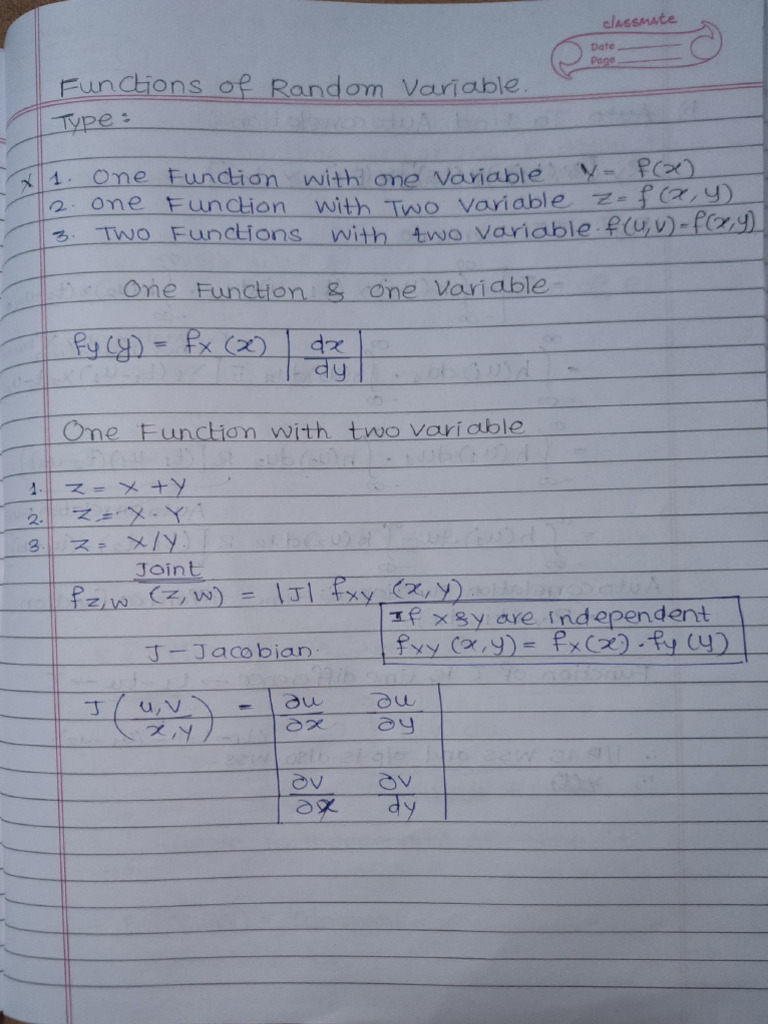 classmate
Date
Page
Functions of Random Variable.
Type:
x 1. One Function with one variable Y = f(x)
2. one Function with Two variable z = f(x, y)
3. Two Functions with two variable. f(u,v) = f(x,y)
One Function & one variable
fy(y) = fx(x) | dx/dy |
One Function with two variable
1. z = x + y
2. z = x - y
3. z = x / y.
Joint
fz,w (z,w) = |J| fxy (x,y)
If x & y are independent
fxy (x,y) = fx(x) . fy(y)
J - Jacobian.
J ( u,v / x,y ) = | ∂u/∂x ∂u/∂y
∂v/∂x ∂v/dy |